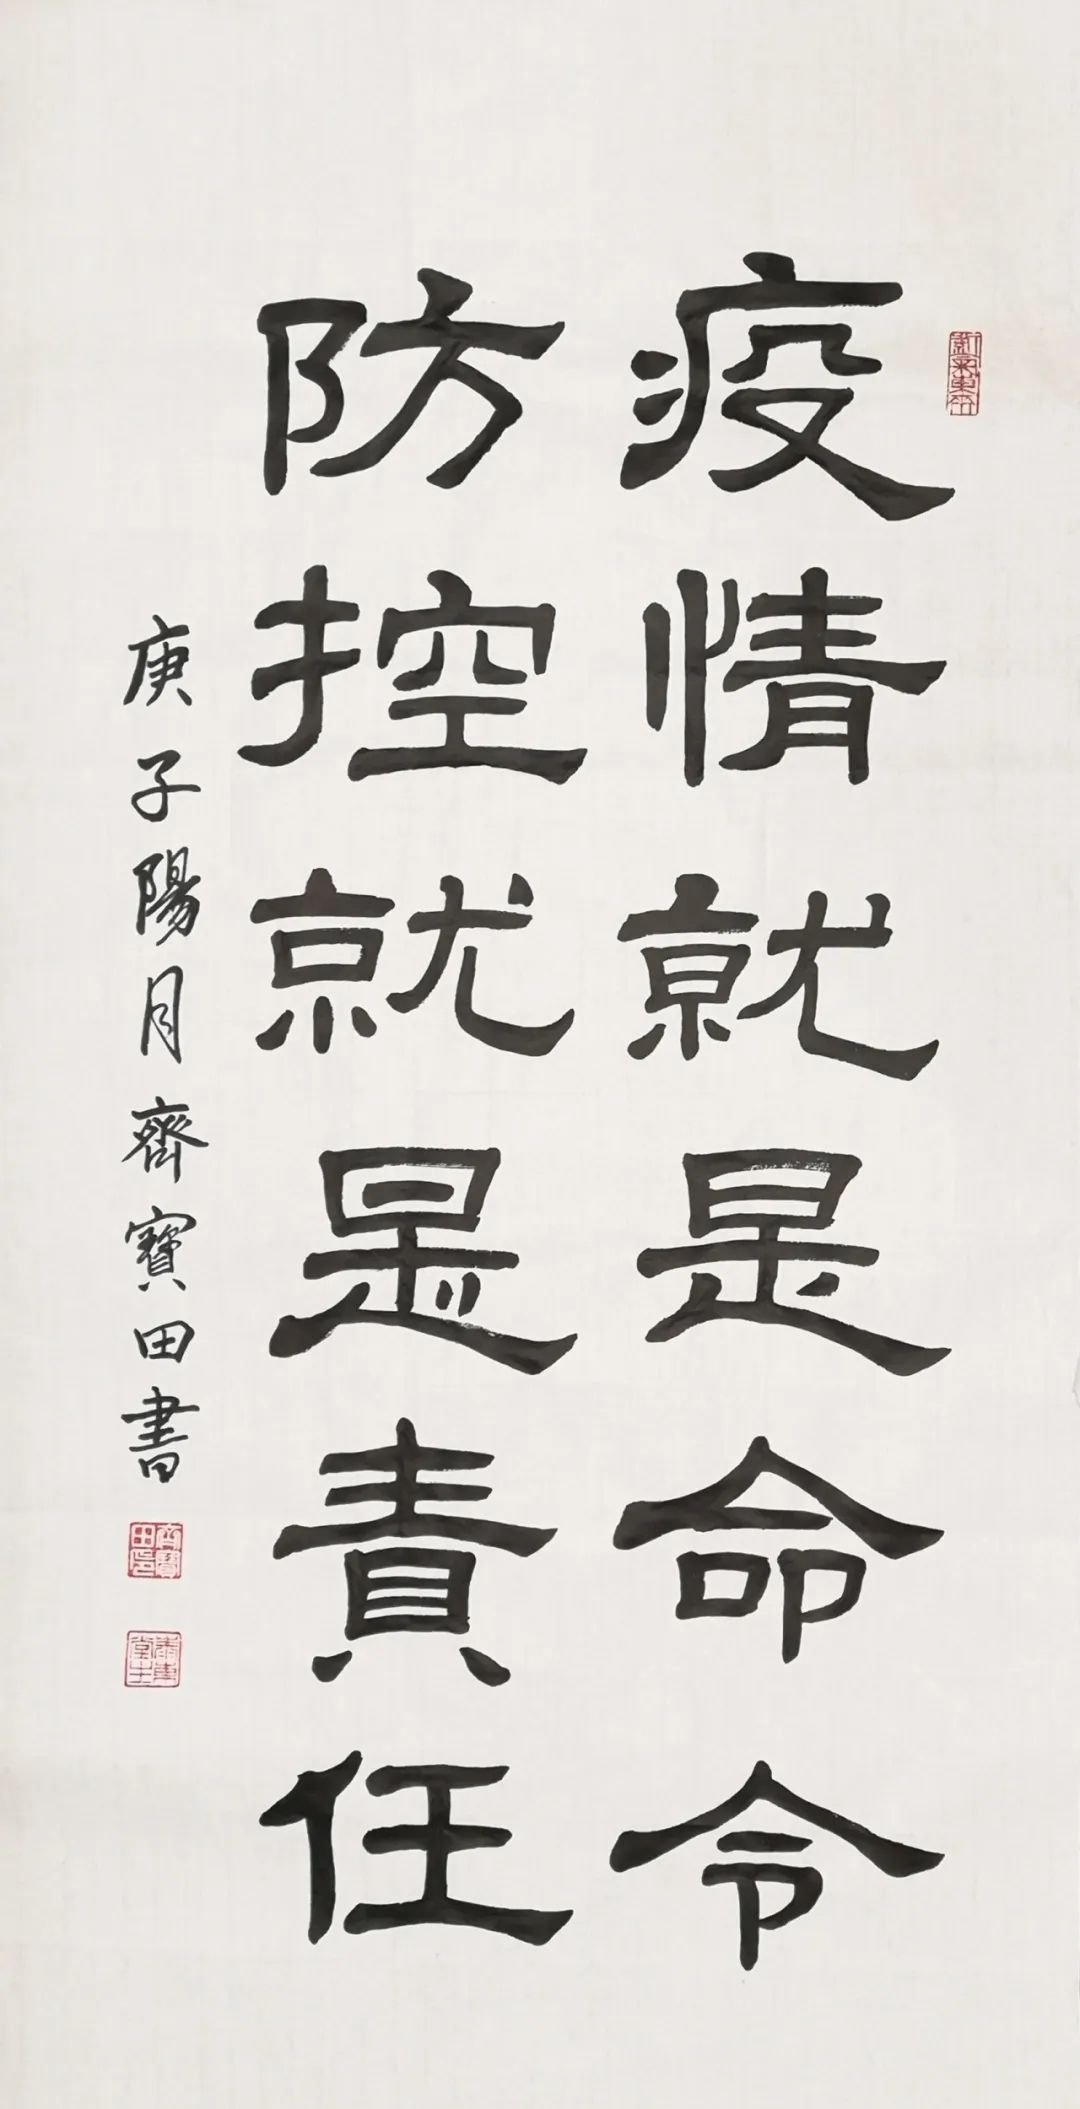 疫情就是命令
防控就是責任
庚子陽月齊寶田書
齊寶田印